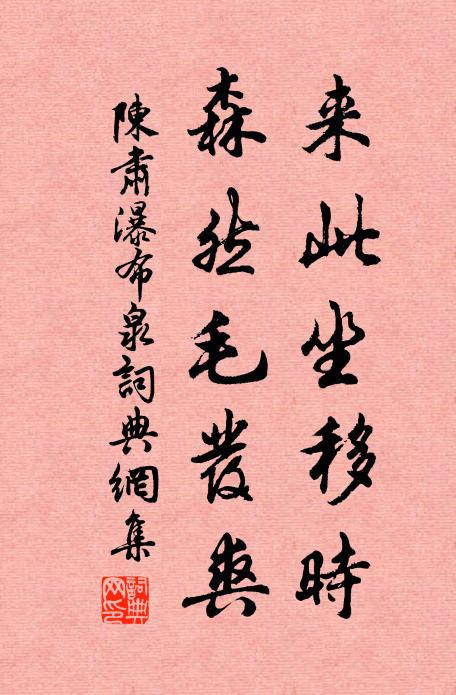 来此坐移時
森然毛發爽
陳肅瀑布泉詞典網集
詞典网印